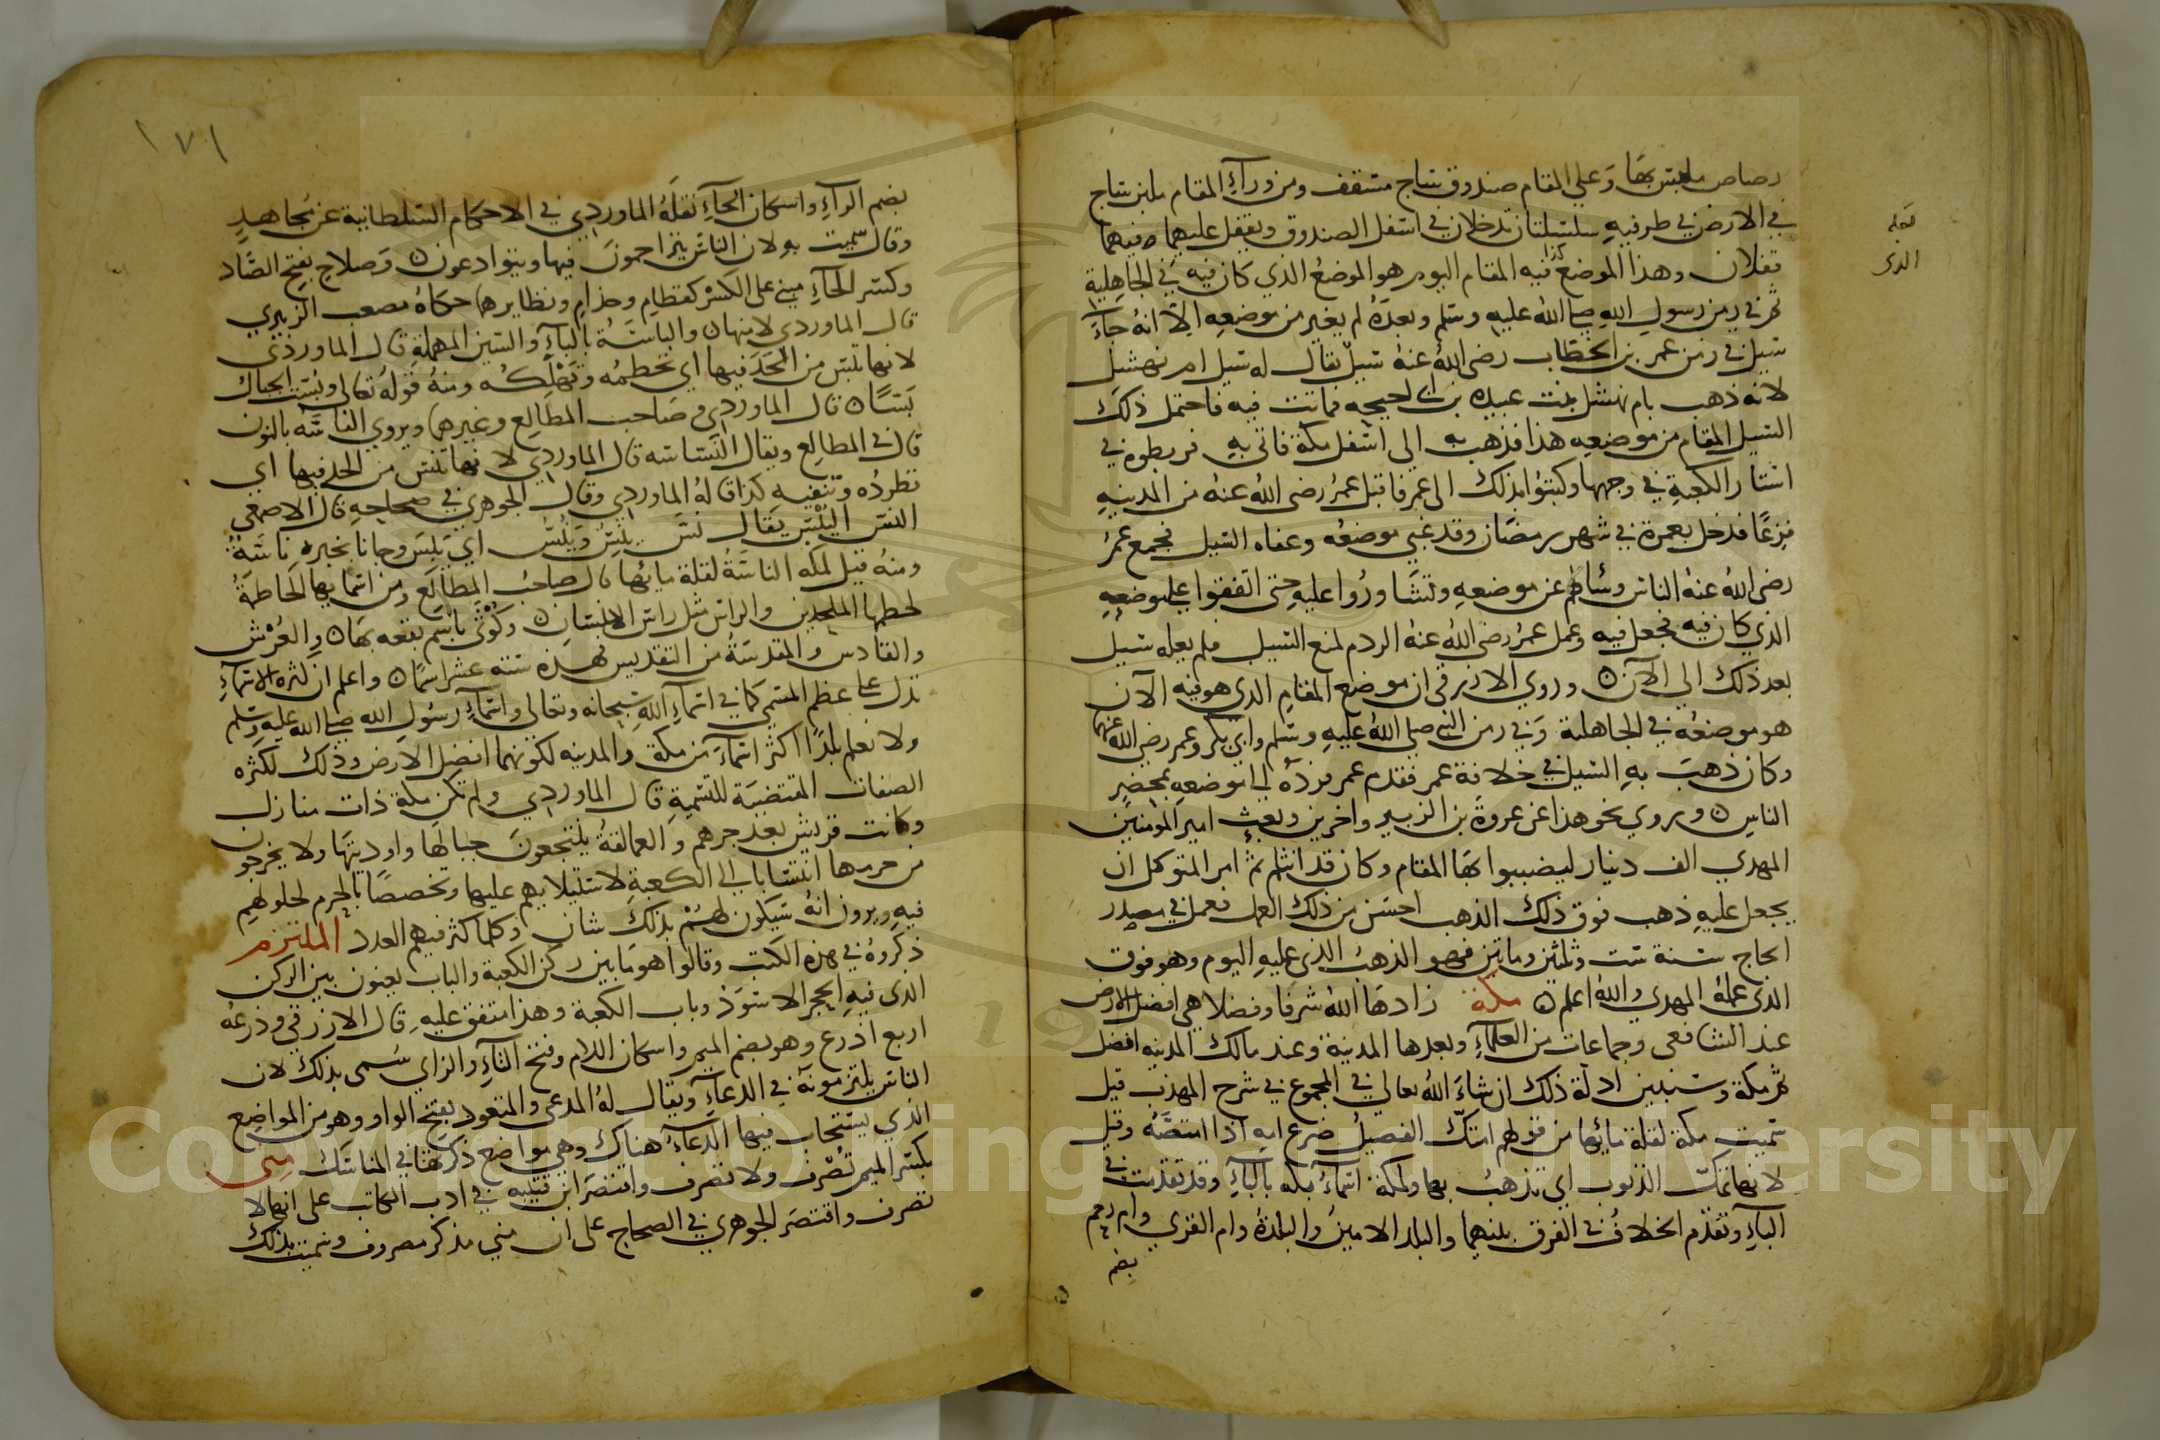 رصاص ملبس بها وعلي المقام صندوق ساج مسقف ومن ورآءِ المقام ملبن ساج
في الارض في طرفيه سلسلتان تدخلان في اسفل الصندوق ويقفل عليهما فيهما
قفلان وهذا الموضع الذي فيه المقام اليوم هو الموضع الذي كان فيه في الجاهلية
ثم في زمن رسول الله صلى الله عليه وسلم وبعده لم يغير من موضعه الا انه جآءَ
سيل في زمن عمر بن الخطاب رضي الله عنه سيل يقال له سيل ام نهشل
لانه ذهب بام نهشل بنت عبيدة بن ابي احيحه فماتت فيه فاحتمل ذلك
السيل المقام من موضعه هذا فذهب به الى اسفل مكة فاتي به فربطوه في
استار الكعبة في وجهها وكتبوا بذلك الى عمر فاقبل عمر رضي الله عنه من المدينه
فزعًا فدخل بعمرة في شهر رمضان وقد غبي موضعه وعفاه السيل فجمع عمر
رضي الله عنه الناس وسألهم عن موضعه وتشاوروا عليه حتى اتفقوا على موضعه
الذي كان فيه فجعل فيه وعمل عمر رضي الله عنه الردم لمنع السيل فلم يعله سيل
بعد ذلك الي الآن وروي الازرقي ان موضع المقام الذي هو فيه الآن
هو موضعه في الجاهلية وفي زمن النبي صلى الله عليه وسلم وابي بكر وعمر رضي الله عنهما
وكان ذهب به السيل في خلافة عمر فقدم عمر فرده الي موضعه بمحضر
الناس ويروي نحو هذا عن عروة بن الزبير واخرين وبعث امير المومنين
المهدي الف دينار ليضببوا بها المقام وكان قد انثلم ثم امر المتوكل ان
يجعل عليه ذهب فوق ذلك الذهب احسن من ذلك العمل فعمل في مصدر
الحاج سنة ست وثلثين وماتين فهو الذهب الذي عليه اليوم وهو فوق
الذي عمله المهدي والله اعلم مكة زادها الله شرفا وفضلا هي افضل الارض
عند الشافعي وجماعات من العلمآءِ وبعدها المدينة وعند مالك المدينه افضل
ثم مكة وسنبين ادلة ذلك ان شاء الله تعالي في المجموع في شرح المهذب قيل
سميت مكة لقلة مائها من قولهم امتك الفصيل ضرع امه اذا امتصه وقيل
لانها تمك الذنوب اي تذهب بها ولمكة اسماء بكه بالبآءِ وقد تقدمت في
البآءِ وتقدم الخلاف في الفرق بينهما والبلد الامين والبلدة وام القري وام رحم
بضم
تعلم
الذي
١٧١
بضم الرآءِ واسكان الحآءِ نقله الماوردي في الاحكام السلطانية عن مجاهد
وقال سميت به لان الناس يتراحمون فيها ويتوادعون وصلاح بفتح الصاد
وكسر الحآءِ مبني على الكسر كقطام وحذام ونظايرهما حكاه مصعب الزبيري
قال الماوردي لامنها والباسّة بالبآءِ والسين المهملة قال الماوردي
لانها تبس من الحد فيها اي تحطمه وتهلكه ومنه قوله تعالى وبست الجبال
بسًا قال الماوردي وصاحب المطالع وغيرهما ويروي الناسّه بالنون
قال في المطالع ويقال النساسه قال الماوردي لانها تنس من الحد فيها اي
تطرده وتنفيه كذا قاله الماوردي وقال الجوهري في صحاحه قال الاصمعي
النس اليبس يقال نس ينس وينس اي يبس وجانا بخبزه ناسّة
ومنه قيل لمكه الناسّة لقلة مائها قال صاحب المطالع ومن اسمايها الحاطمة
لحطمها الملحدين والراس مثل راس الانسان وكوثى باسم بقعه بها والعُرش
والقادس والمقدسة من التقديس فهذه سته عشر اسمًا واعلم ان كثره الاسمآءِ
تدل على عظم المسمي كما في اسمآءِ الله سبحانه وتعالي واسمآءِ رسول الله صلى الله عليه وسلم
ولا نعلم بلدًا اكثر اسمآء من مكة والمدينه لكونهما افضل الارض وذلك لكثره
الصفات المقتضية للتسمية قال الماوردي ولم تكن مكة ذات منازل
وكانت قريش بعد جرهم والعمالقة ينتجعون جبالها واوديتها ولا يخرجون
من حرمها انتسابا الي الكعبة لاستيلايهم عليها وتخصصًا بالحرم لحلولهم
فيه ويرون انه سيكون لهم بذلك شان وكلما كثر فيهم العدد الملتزم
ذكروه في هذه الكتب وقالوا هو ما بين ركن الكعبة والباب يعنون بين الركن
الذي فيه الحجر الاسود وباب الكعبة وهذا متفق عليه قال الازرقي وذرعه
اربع اذرع وهو بضم الميم واسكان اللام وفتح التآءِ والزاي سمى بذلك لان
الناس يلتزمونه في الدعآءِ ويقال له المدعى والمتعوذ بفتح الواو وهو من المواضع
الذي يستجاب فيها الدعآءُ هناك وهي مواضع ذكرتها في المناسك منى
بكسر الميم تصرف ولا تصرف واقتصر ابن قتيبه في ادب الكاتب على انها لا
تصرف واقتصر الجوهري في الصحاح على ان مني مذكر مصروف وسميت بذلك
Copyright © King Saud University